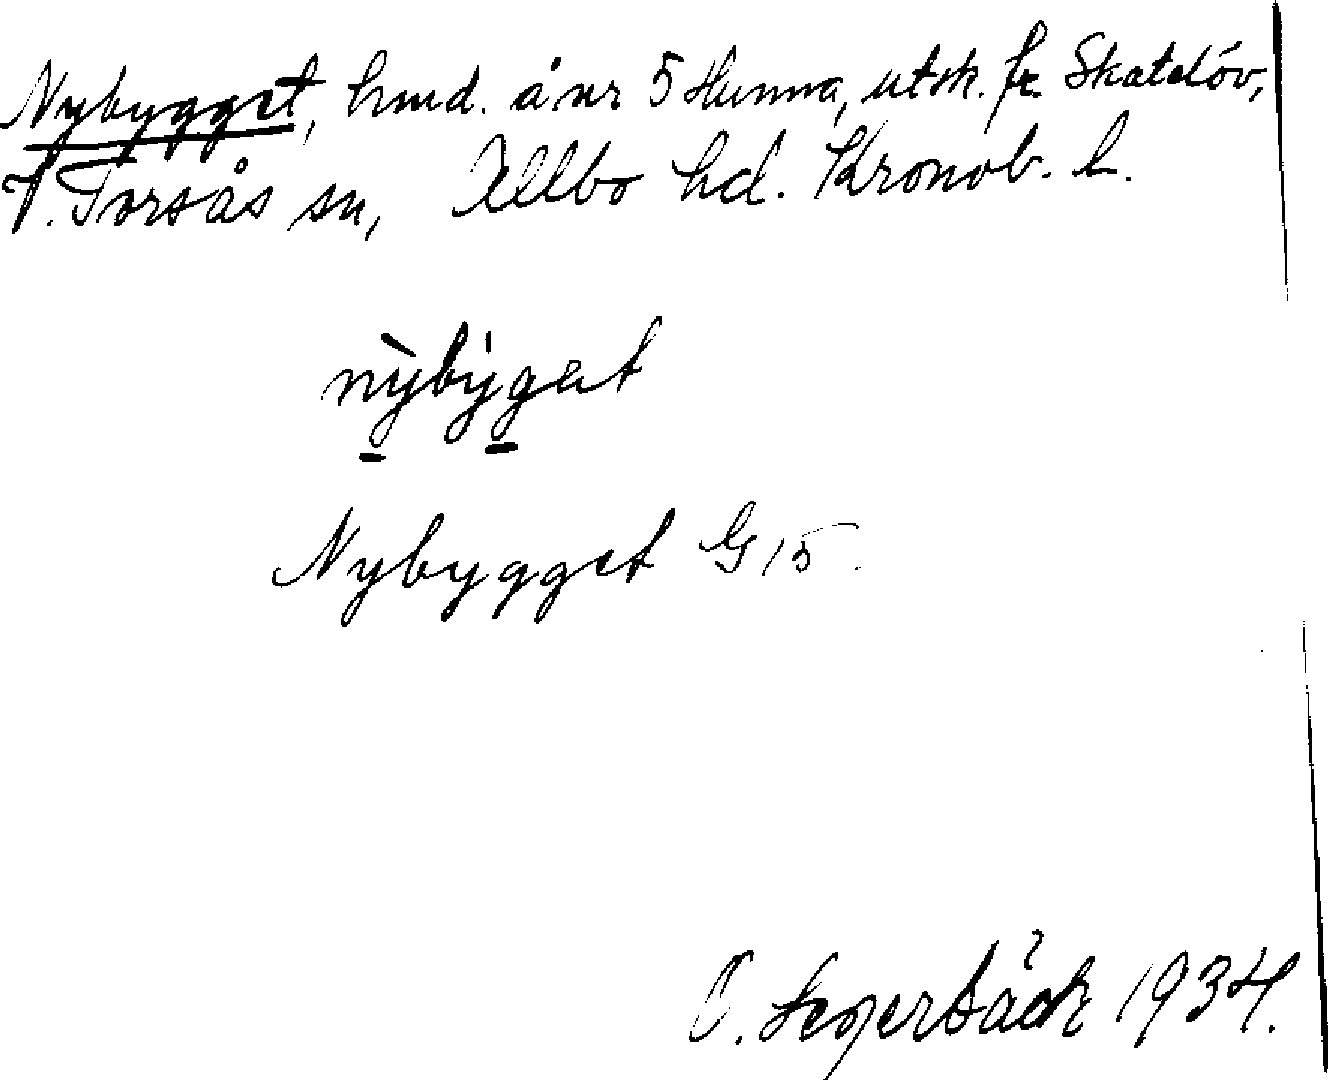 Nybygget, hmd. å nr 5 Hunna, utsk. fr. Skatelöv,
V. Torsås sn, Allbo hd. Kronob. l.
nỳbýgat
Nybygget G 15.
O. Segerbäck 1934.